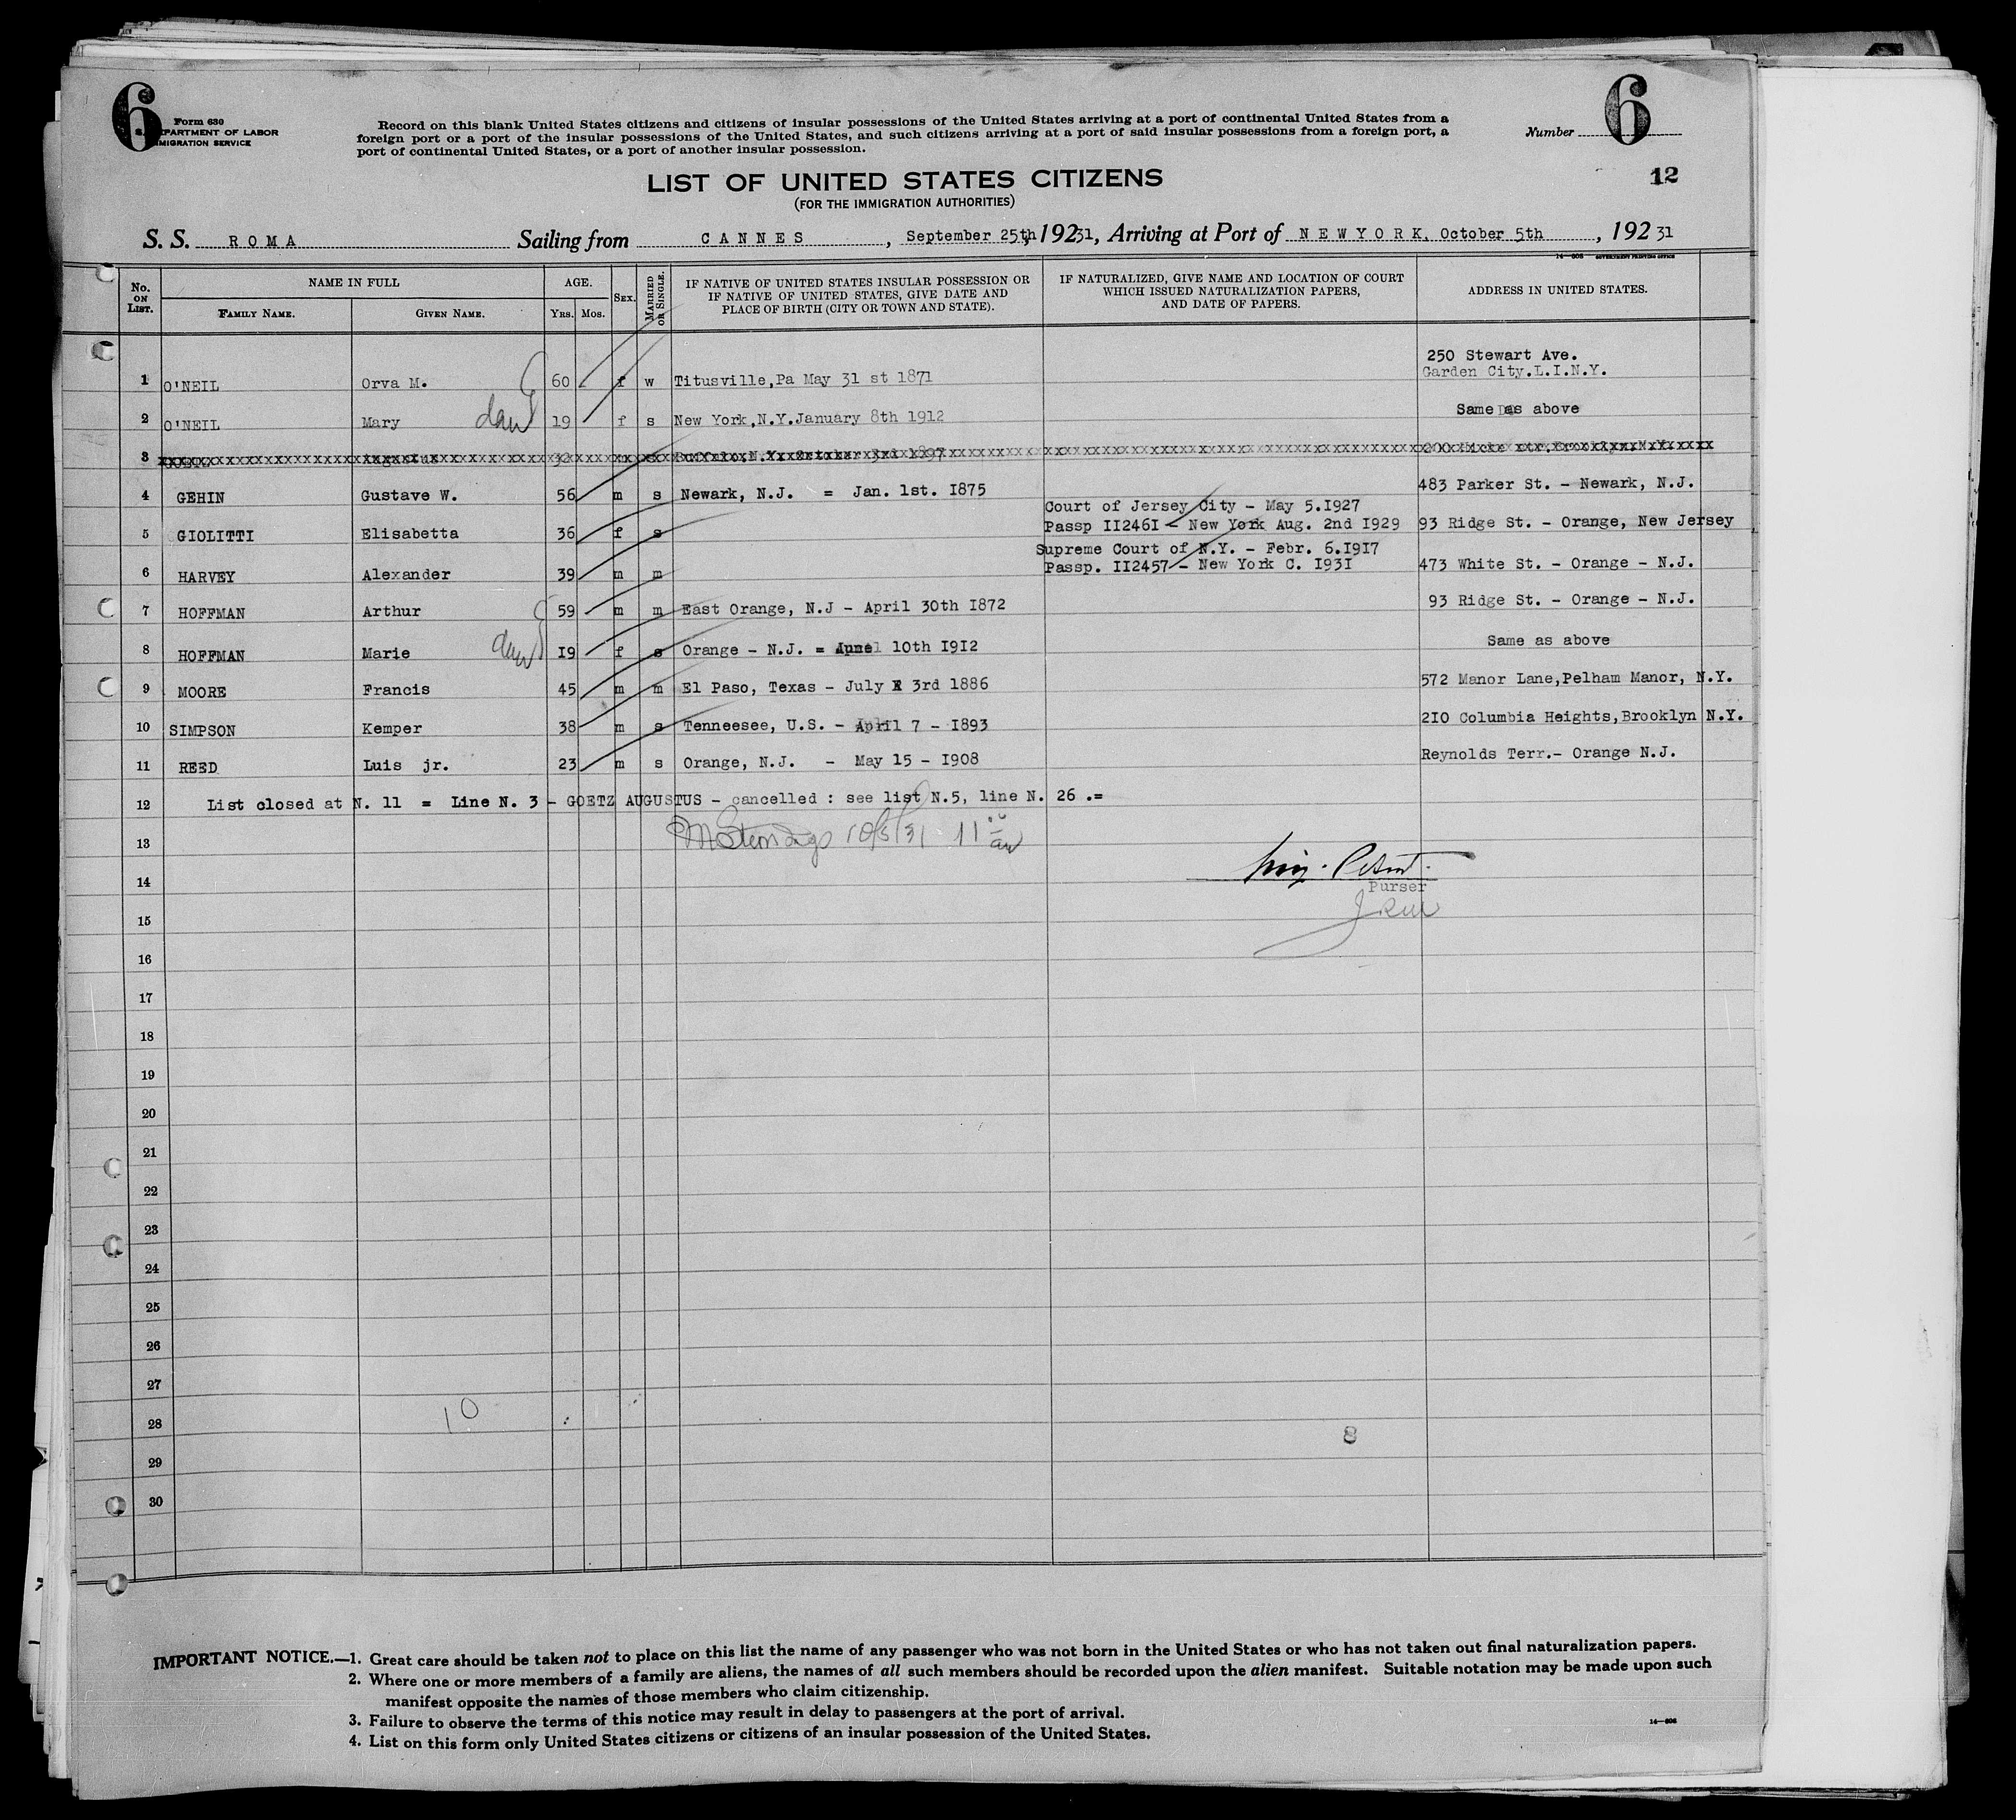 6
Form 630
U. S. DEPARTMENT OF LABOR
IMMIGRATION SERVICE
Record on this blank United States citizens and citizens of insular possessions of the United States arriving at a port of continental United States from a
foreign port or a port of the insular possessions of the United States, and such citizens arriving at a port of said insular possessions from a foreign port, a
port of continental United States, or a port of another insular possession.
Number
6
12
LIST OF UNITED STATES CITIZENS
(FOR THE IMMIGRATION AUTHORITIES)
S. S. ROMA Sailing from CANNES, September 25th, 19231, Arriving at Port of NEWYORK, October 5th, 192 31
14—606 GOVERNMENT PRINTING OFFICE
No. ON LIST. NAME IN FULL AGE. SEX. MARRIED OR SINGLE. IF NATIVE OF UNITED STATES INSULAR POSSESSION OR IF NATIVE OF UNITED STATES, GIVE DATE AND PLACE OF BIRTH (CITY OR TOWN AND STATE). IF NATURALIZED, GIVE NAME AND LOCATION OF COURT WHICH ISSUED NATURALIZATION PAPERS, AND DATE OF PAPERS. ADDRESS IN UNITED STATES.
FAMILY NAME. GIVEN NAME. YRS. MOS.
250 Stewart Ave.
1 O'NEIL Orva M. 60 f w Titusville,Pa May 31 st 1871 Garden City.L.I.N.Y.
2 O'NEIL Mary dau 19 f s New York,N.Y.January 8th 1912 Same as above
3 Augustus 32 Buffalo,N.Y. October 3rd 1897 200 Hicks str.Brooklyn.N.Y.
4 GEHIN Gustave W. 56 m s Newark, N.J. = Jan. 1st. I875 483 Parker St. - Newark, N.J.
Court of Jersey City - May 5.I927
5 GIOLITTI Elisabetta 36 f s Passp II246I - New York Aug. 2nd I929 93 Ridge St. - Orange, New Jersey
Supreme Court of N.Y. - Febr. 6.I9I7
6 HARVEY Alexander 39 m m Passp. II2457 - New York C. I93I 473 White St. - Orange - N.J.
7 HOFFMAN Arthur 59 m m East Orange, N.J - April 30th I872 93 Ridge St. - Orange - N.J.
8 HOFFMAN Marie dau I9 f s Orange - N.J. = 10th I9I2 Same as above
9 MOORE Francis 45 m m El Paso, Texas - July 3rd 1886 572 Manor Lane,Pelham Manor, N.Y.
10 SIMPSON Kemper 38 m s Tenneesee, U.S. - April 7 - I893 2I0 Columbia Heights,Brooklyn N.Y.
11 REED Luis jr. 23 m s Orange, N.J. - May 15 - I908 Reynolds Terr.- Orange N.J.
12 List closed at N. 11 = Line N. 3 - GOETZ AUGUSTUS - cancelled : see list N.5, line N. 26 .=
13 10/5/31 11 00 am
14 Purser
15
16
17
18
19
20
21
22
23
24
25
26
27
28 10 8
29
30
IMPORTANT NOTICE.—1. Great care should be taken not to place on this list the name of any passenger who was not born in the United States or who has not taken out final naturalization papers.
2. Where one or more members of a family are aliens, the names of all such members should be recorded upon the alien manifest. Suitable notation may be made upon such
manifest opposite the names of those members who claim citizenship.
3. Failure to observe the terms of this notice may result in delay to passengers at the port of arrival.
4. List on this form only United States citizens or citizens of an insular possession of the United States.
14—606